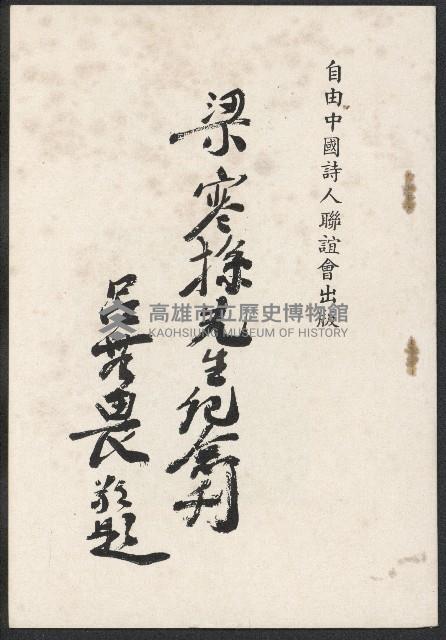 自由中國詩人聯誼會出版
梁寒操先生紀念刊
呂無畏敬題
高雄市立歷史博物館
KAOHSIUNG MUSEUM OF HISTORY